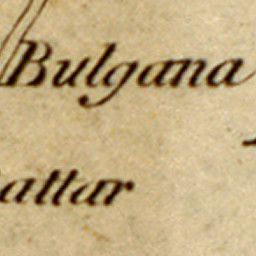 Bulgana
attar